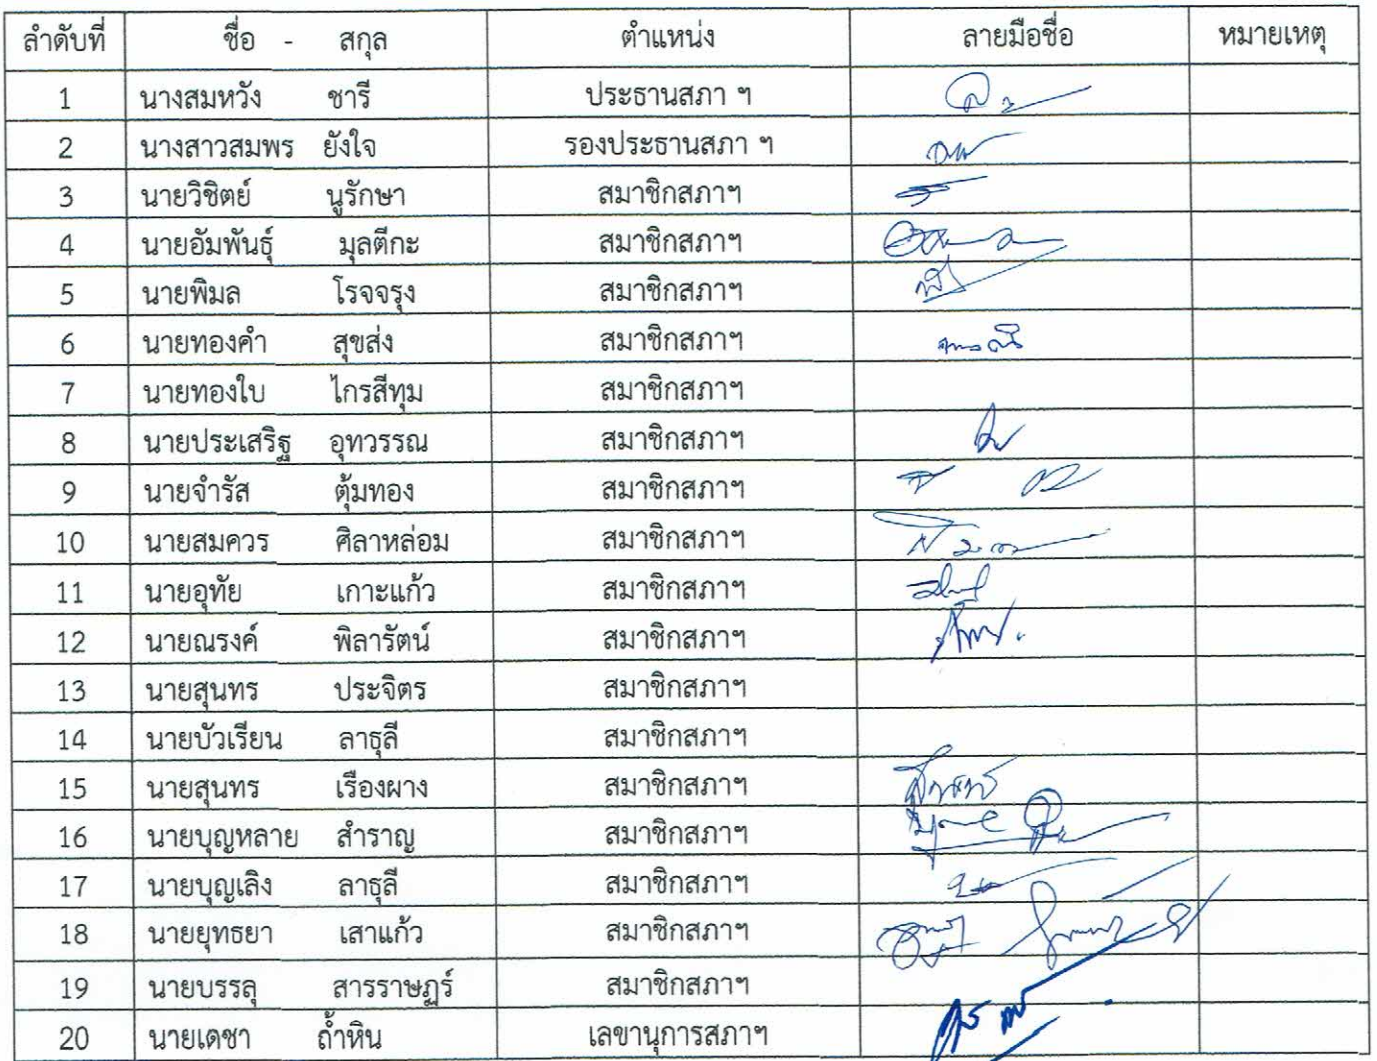 ลำดับที่ ชื่อ - สกุล ตำแหน่ง ลายมือชื่อ หมายเหตุ
1 นางสมหวัง ชารี ประธานสภา ฯ
2 นางสาวสมพร ยังใจ รองประธานสภา ฯ
3 นายวิชิตย์ นูรักษา สมาชิกสภาฯ
4 นายอัมพันธุ์ มุลตีกะ สมาชิกสภาฯ
5 นายพิมล โรจจรุง สมาชิกสภาฯ
6 นายทองคำ สุขส่ง สมาชิกสภาฯ
7 นายทองใบ ไกรสีทุม สมาชิกสภาฯ
8 นายประเสริฐ อุทวรรณ สมาชิกสภาฯ
9 นายจำรัส ตุ้มทอง สมาชิกสภาฯ
10 นายสมควร ศิลาหล่อม สมาชิกสภาฯ
11 นายอุทัย เกาะแก้ว สมาชิกสภาฯ
12 นายณรงค์ พิลารัตน์ สมาชิกสภาฯ
13 นายสุนทร ประจิตร สมาชิกสภาฯ
14 นายบัวเรียน ลาธุลี สมาชิกสภาฯ
15 นายสุนทร เรืองผาง สมาชิกสภาฯ
16 นายบุญหลาย สำราญ สมาชิกสภาฯ
17 นายบุญเลิง ลาธุลี สมาชิกสภาฯ
18 นายยุทธยา เสาแก้ว สมาชิกสภาฯ
19 นายบรรลุ สารราษฎร์ สมาชิกสภาฯ
20 นายเดชา ถ้ำหิน เลขานุการสภาฯ